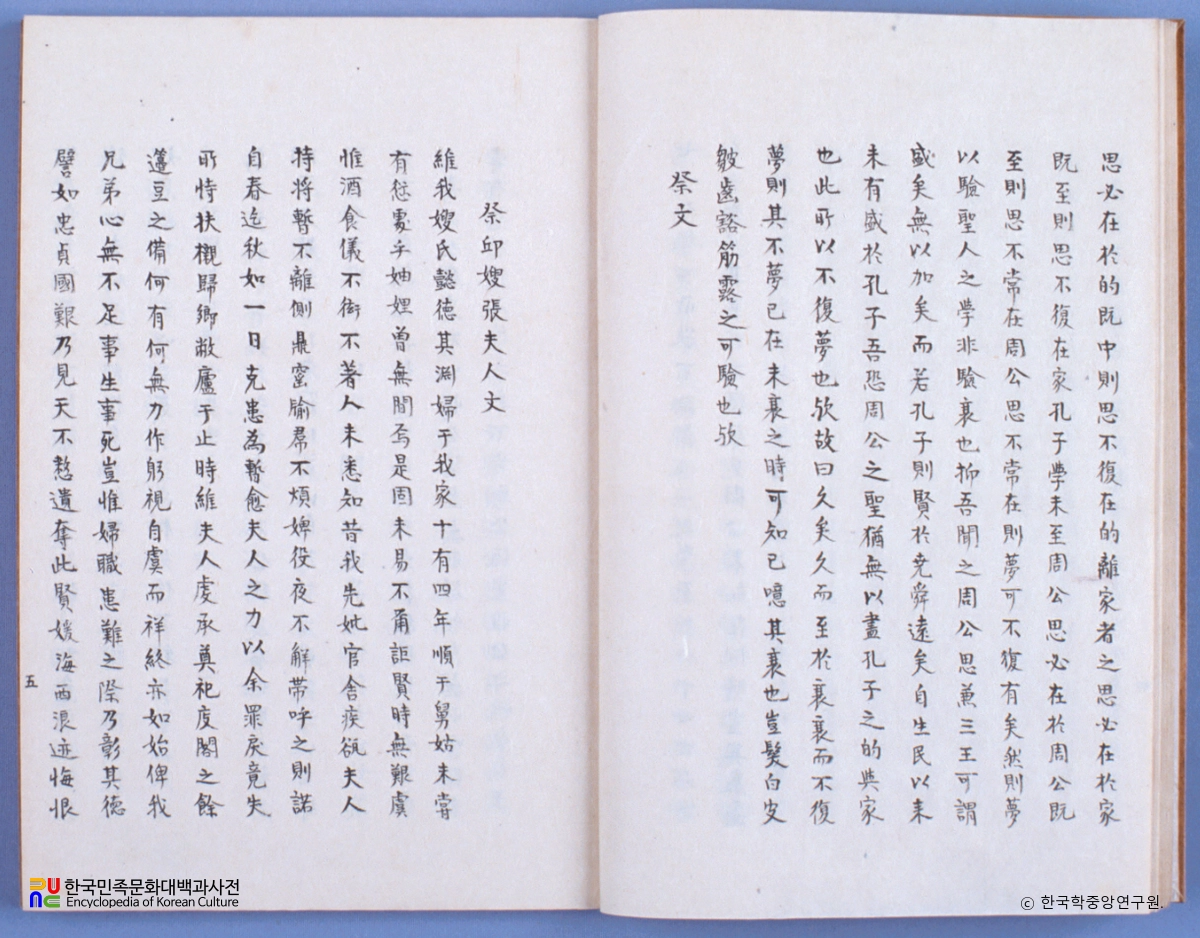 思必在於的既中則思不復在的離家者之思必在於家
既至則思不復在家孔子學未至周公思必在於周公旣
至則思不常在周公思不常在則夢可不復有矣然則夢
以驗聖人之學非驗衰也抑吾聞之周公思兼三王可謂
盛矣無以加矣而若孔子則賢於堯舜遠矣自生民以来
未有盛於孔子吾恐周公之聖猶無以盡孔子之的與家
也此所以不復夢也欤故曰久矣久而至於衰衰而不復
夢則其不夢已在未衰之時可知已噫其衰也豈髮白皮
皴齒豁筋露之可驗也欤
祭文
祭邱嫂張夫人文
維我嫂氏懿德其淵婦于我家十有四年順于舅姑未甞
有愆處乎妯娌曾無間焉是固未易不甭詎賢時無艱虞
惟酒食儀不衒不著人未悉知昔我先妣官舍疾欲夫人
持將暫不離側鼎窰腧帬不煩婢役夜不解帶呼之則諾
自春迄秋如一日克患為暫愈夫人之力以余罪戾竟失
所恃扶櫬歸鄉敝廬于止時維夫人虔承奠祀庋閣之餘
籩豆之備何有何無力作躬視自虞而祥終亦如始俾我
兄弟心無不足事生事死豈惟婦職患難之際乃彰其德
譬如忠貞國艱乃見天不憗遺奪此賢媛海西浪迹悔恨
五
한국민족문화대백과사전
Encyclopedia of Korean Culture
ⓒ 한국학중앙연구원.